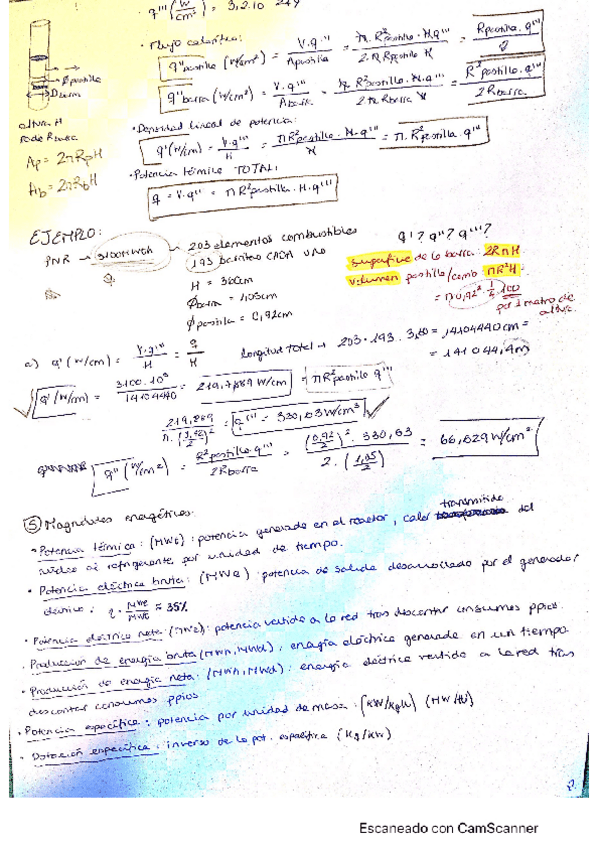 q'''(W/cm³) = 3,2.10
• Flujo calorífico:
q''pastilla (W/cm²) = V.q'''/Apastilla = π.R²pastilla.H.q'''/2.π.Rpastilla.H = Rpastilla.q'''/2
q''barra (W/cm²) = V.q'''/Abarra = π R²pastilla.H.q'''/2π Rbarra H = R²pastilla.q'''/2Rbarra
øpastilla
altura H
Ap = 2πRpH
Ab = 2πRbH
• Densidad lineal de potencia:
q'(W/cm) = V.q'''/H = πR²pastilla.H.q'''/H = π.R²pastilla.q'''
• Potencia térmica TOTAL:
q = V.q''' = πR²pastilla.H.q'''
EJEMPLO:
PWR → 3100MWth → 203 elementos combustibles
193 barras CADA UNO
H = 360cm
øbarra = 1,05cm
øpastilla = 0,92cm
q'? q''? q'''?
superficie de la barra: 2RπH
volumen pastilla/ : πR²H =
= π 0,92² . 1/4 . 100
por 1 metro de altura.
a) q'(W/cm) = V.q'''/H = q/H
Longitud total → 203.193.3,60 = 14104440cm =
= 141044,4m
q'(W/cm) = 3100.10⁶/14104440 = 219,789 W/cm = πR²pastilla q'''
219,789/π.(0,92/2)² = q''' = 330,63W/cm³
q''(W/cm²) = R²pastilla.q'''/2Rbarra = (0,92/2)². 330,63/2.(1,05/2) = 66,629W/cm²
⑤ Magnitudes energéticas.
• Potencia térmica: (MWt): potencia generada en el reactor, calor transmitido del
núcleo al refrigerante por unidad de tiempo.
• Potencia eléctrica bruta: (MWe): potencia de salida desarrollada por el generador
eléctrico: η. MWe/MWt ≈ 35%
• Potencia eléctrica neta: (MWe): potencia vertida a la red tras descontar consumos ppios.
• Producción de energía bruta (MWh, MWd): energía eléctrica generada en un tiempo.
• Producción de energía neta: (MWh, MWd): energía eléctrica vertida a la red tras
descontar consumos ppios
• Potencia específica: potencia por unidad de masa. (KW/KgU) (MW/tU)
• Dotación específica: inverso de la pot. específica (Kg/kW)
Escaneado con CamScanner